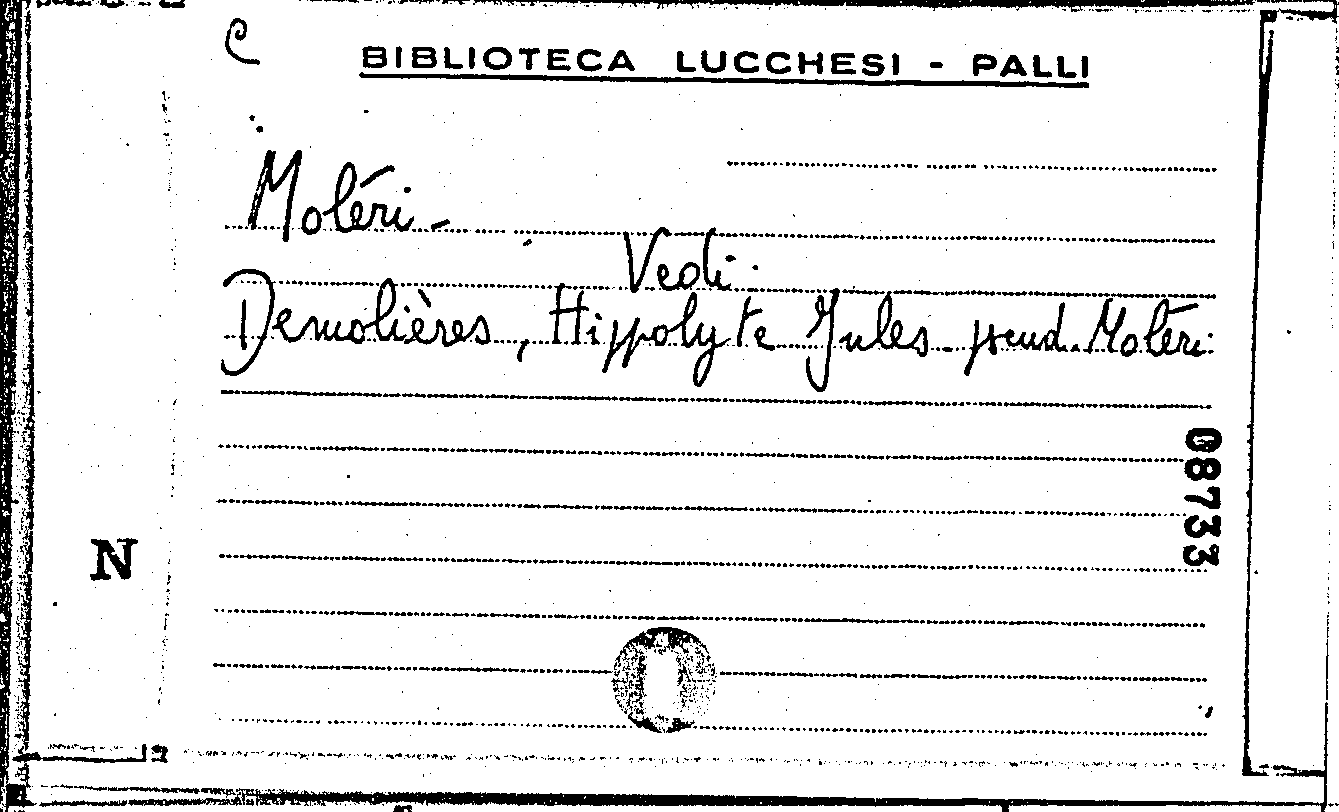 C
BIBLIOTECA LUCCHESI - PALLI
Moléri -
Vedi:
Demolières, Hippolyte Jules pseud. Moléri
08733
N